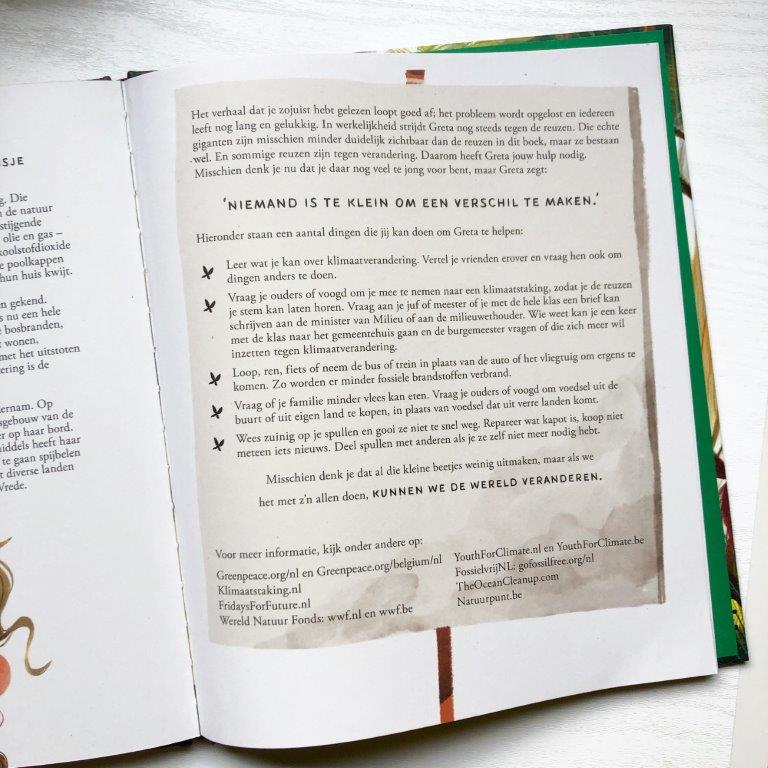 ISJE
g. Die
de natuur
stijgende
olie en gas –
koolstofdioxide
e poolkappen
hun huis kwijt.
n gekend.
s nu een hele
e bosbranden,
t wonen,
met het uitstoten
ering is de
dernam. Op
sgebouw van de
er op haar bord.
niddels heeft haar
te gaan spijbelen
t diverse landen
Vrede.
Het verhaal dat je zojuist hebt gelezen loopt goed af; het probleem wordt opgelost en iedereen
leeft nog lang en gelukkig. In werkelijkheid strijdt Greta nog steeds tegen de reuzen. Die echte
giganten zijn misschien minder duidelijk zichtbaar dan de reuzen in dit boek, maar ze bestaan
wel. En sommige reuzen zijn tegen verandering. Daarom heeft Greta jouw hulp nodig.
Misschien denk je nu dat je daar nog veel te jong voor bent, maar Greta zegt:
'NIEMAND IS TE KLEIN OM EEN VERSCHIL TE MAKEN.'
Hieronder staan een aantal dingen die jij kan doen om Greta te helpen:
Leer wat je kan over klimaatverandering. Vertel je vrienden erover en vraag hen ook om
dingen anders te doen.
Vraag je ouders of voogd om je mee te nemen naar een klimaatstaking, zodat je de reuzen
je stem kan laten horen. Vraag aan je juf of meester of je met de hele klas een brief kan
schrijven aan de minister van Milieu of aan de milieuwethouder. Wie weet kan je een keer
met de klas naar het gemeentehuis gaan en de burgemeester vragen of die zich meer wil
inzetten tegen klimaatverandering.
Loop, ren, fiets of neem de bus of trein in plaats van de auto of het vliegtuig om ergens te
komen. Zo worden er minder fossiele brandstoffen verbrand.
Vraag of je familie minder vlees kan eten. Vraag je ouders of voogd om voedsel uit de
buurt of uit eigen land te kopen, in plaats van voedsel dat uit verre landen komt.
Wees zuinig op je spullen en gooi ze niet te snel weg. Repareer wat kapot is, koop niet
meteen iets nieuws. Deel spullen met anderen als je ze zelf niet meer nodig hebt.
Misschien denk je dat al die kleine beetjes weinig uitmaken, maar als we
het met z'n allen doen, KUNNEN WE DE WERELD VERANDEREN.
Voor meer informatie, kijk onder andere op:
Greenpeace.org/nl en Greenpeace.org/belgium/nl
Klimaatstaking.nl
FridaysForFuture.nl
Wereld Natuur Fonds: wwf.nl en wwf.be
YouthForClimate.nl en YouthForClimate.be
FossielvrijNL: gofossilfree.org/nl
TheOceanCleanup.com
Natuurpunt.be